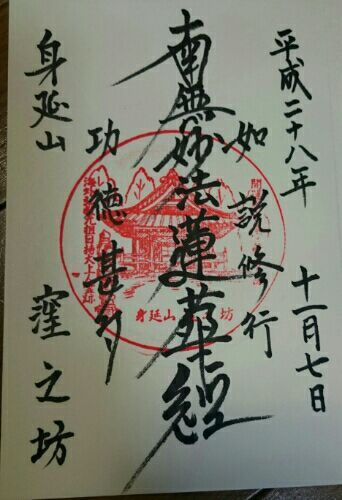 平成二十八年 十一月七日
如説修行
南無妙法蓮華経
功徳甚多
身延山 窪之坊
身延山 坊